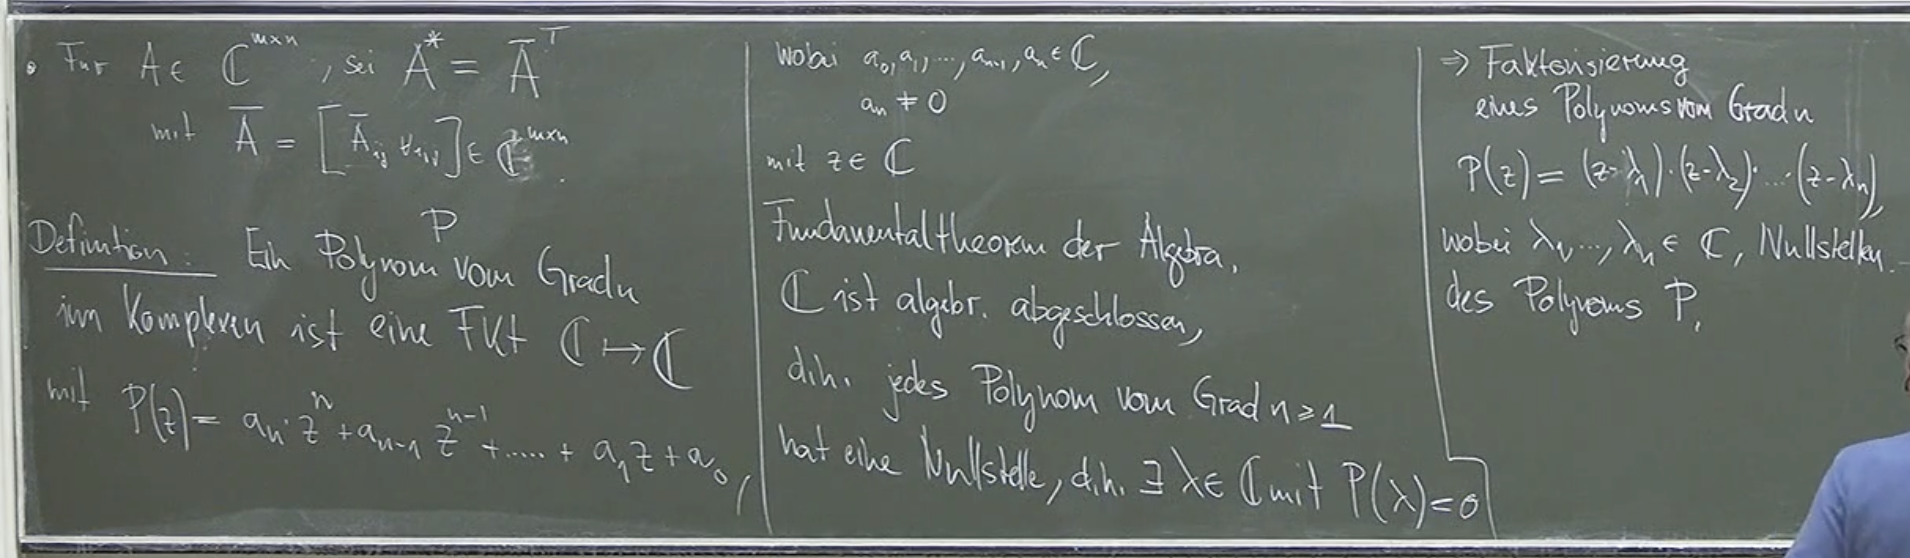 • Für A ∈ ℂ^{m×n}, sei A* = Ā^T
mit Ā = [Ā_{ij} ∀_{i,j}] ∈ ℂ^{m×n}.
Definition: Ein Polynom P vom Grad n
im Komplexen ist eine Fkt ℂ ↦ ℂ
mit P(z) = a_n · z^n + a_{n-1} z^{n-1} + ..... + a_1 z + a_0,
wobei a_0, a_1, ..., a_{n-1}, a_n ∈ ℂ,
a_n ≠ 0
mit z ∈ ℂ
Fundamentaltheorem der Algebra.
ℂ ist algebr. abgeschlossen,
d.h. jedes Polynom vom Grad n ≥ 1
hat eine Nullstelle, d.h. ∃ λ ∈ ℂ mit P(λ) = 0
⇒ Faktorisierung
eines Polynoms vom Grad n
P(z) = (z-λ_1)·(z-λ_2)· ... ·(z-λ_n),
wobei λ_1, ..., λ_n ∈ ℂ, Nullstellen.
des Polynoms P.